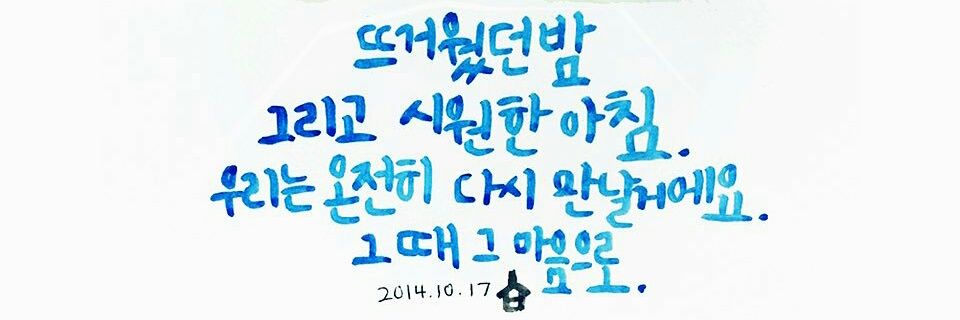 뜨거웠던 밤
그리고 시원한 아침.
우리는 온전히 다시 만날거에요.
그 때 그 마음으로.
2014.10.17